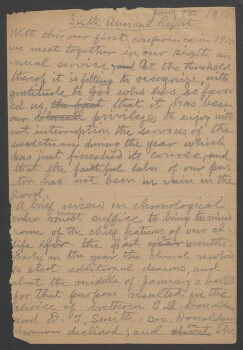 Jan 7th 1910
Sixth Annual Report
With this our first conference in 1910
we meet together in our sixth an
nual service, and at the threshold
thereof it is fitting to recognize with
gratitude to God who has so favor
ed us, that it has been
our blessed privilege to enjoy with
out interruption the services of the
sanctuary during the year which
has just finished its course, and
that the faithful labor of our pas
tor has not been in vain in the
Lord.
A brief review in chronological
order must suffice to bring to mind
some of the chief features of our ch
life for the past months.
Early in the year the church resolved
to elect additional deacons, and
about the middle of January a ballot
for that purpose resulted in the
choice of brethren
and D. J. Smith. Bro.
declined; and the